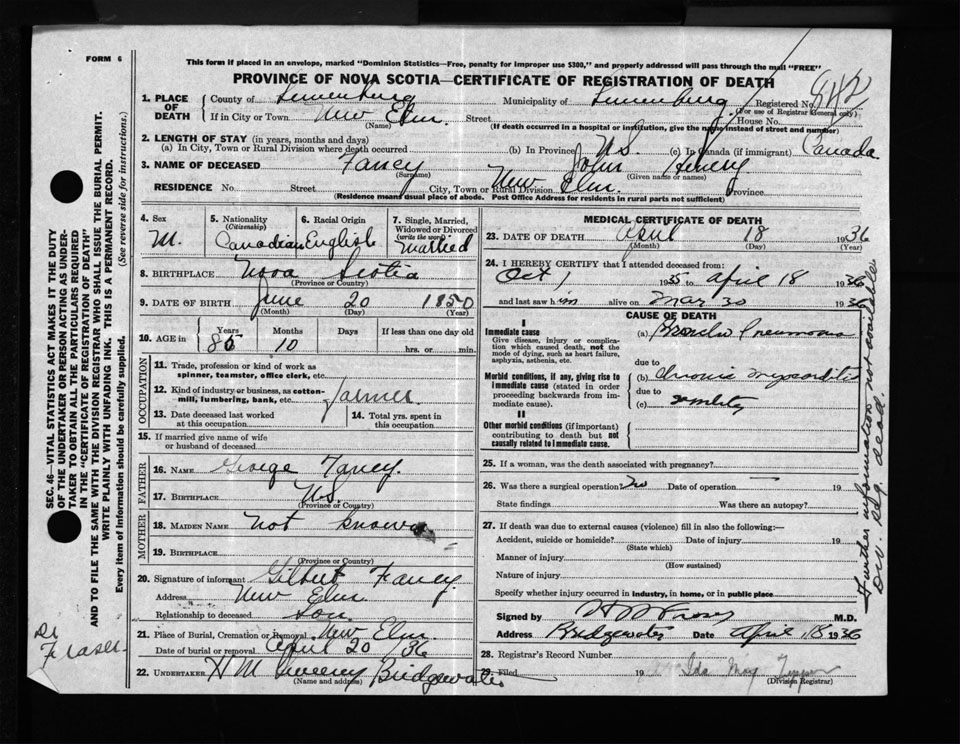 FORM 6
This form if placed in an envelope, marked "Dominion Statistics—Free, penalty for improper use $300," and properly addressed will pass through the mail "FREE"
PROVINCE OF NOVA SCOTIA—CERTIFICATE OF REGISTRATION OF DEATH
842
1. PLACE OF DEATH
County of Lunenburg Municipality of Lunenburg Registered No.
(For use of Registrar General only)
If in City or Town New Elm Street House No.
(Name) (If death occurred in a hospital or institution, give the name instead of street and number)
2. LENGTH OF STAY (in years, months and days)
(a) In City, Town or Rural Division where death occurred (b) In Province N.S. (c) In Canada (if immigrant) Canada
3. NAME OF DECEASED Fancy John Henry
(Surname) (Given name or names)
RESIDENCE No. Street City, Town or Rural Division New Elm. Province
(Residence means usual place of abode. Post Office Address for residents in rural parts not sufficient)
4. Sex M.
5. Nationality (Citizenship) Canadian
6. Racial Origin English
7. Single, Married, Widowed or Divorced (write the word) Married
8. BIRTHPLACE Nova Scotia
(Province or Country)
9. DATE OF BIRTH June 20 1850
(Month) (Day) (Year)
10. AGE in Years 85 Months 10 Days If less than one day old hrs. or min.
OCCUPATION
11. Trade, profession or kind of work as spinner, teamster, office clerk, etc.
12. Kind of industry or business, as cotton-mill, lumbering, bank, etc. farmer
13. Date deceased last worked at this occupation
14. Total yrs. spent in this occupation
15. If married give name of wife or husband of deceased
FATHER
16. NAME George Fancy.
17. BIRTHPLACE N.S.
(Province or Country)
MOTHER
18. MAIDEN NAME Not Known
19. BIRTHPLACE
(Province or Country)
20. Signature of informant Gilbert Fancy
Address New Elm
Relationship to deceased Son
21. Place of Burial, Cremation or Removal New Elm.
Date of burial or removal April 20/36
22. UNDERTAKER H M Sweeney Bridgewater
(Name and address)
MEDICAL CERTIFICATE OF DEATH
23. DATE OF DEATH April 18 1936
(Month) (Day) (Year)
24. I HEREBY CERTIFY that I attended deceased from:
Oct 1 1935 to April 18 1936
and last saw him alive on Mar 30 1936
CAUSE OF DEATH
I
Immediate cause
Give disease, injury or complication which caused death, not the mode of dying, such as heart failure, asphyxia, asthenia, etc.
(a) Broncho Pneumonia
due to
Morbid conditions, if any, giving rise to immediate cause (stated in order proceeding backwards from immediate cause).
(b) Chronic myocarditis
due to
(c) senility
II
Other morbid conditions (if important) contributing to death but not causally related to immediate cause.
25. If a woman, was the death associated with pregnancy?
26. Was there a surgical operation? No Date of operation — 19
State findings Was there an autopsy?
27. If death was due to external causes (violence) fill in also the following:—
Accident, suicide or homicide? Date of injury 19
(State which)
Manner of injury
(How sustained)
Nature of injury
Specify whether injury occurred in industry, in home, or in public place
Signed by M.D.
Address Bridgewater Date April 18 1936
28. Registrar's Record Number
29. Filed 19 Ida May
(Division Registrar)
Further information not available
Div. Reg. dead.
SEC. 46—VITAL STATISTICS ACT MAKES IT THE DUTY
OF THE UNDERTAKER OR PERSON ACTING AS UNDER-
TAKER TO OBTAIN ALL THE PARTICULARS REQUIRED
IN THE "CERTIFICATE OF REGISTRATION OF DEATH"
AND TO FILE THE SAME WITH THE DIVISION REGISTRAR WHO SHALL ISSUE THE BURIAL PERMIT.
WRITE PLAINLY WITH UNFADING INK. THIS IS A PERMANENT RECORD.
Every item of Information should be carefully supplied. (See reverse side for instructions.)
Dr
Fraser.